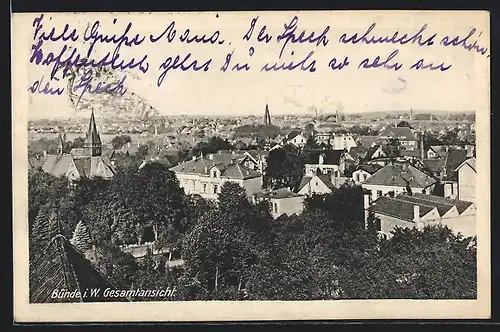 Viele Grüße Mana. Der Speck schmeckt schön.
Hoffentlich gehst Du nicht so sehr an
den Speck
Bünde i. W. Gesamtansicht.